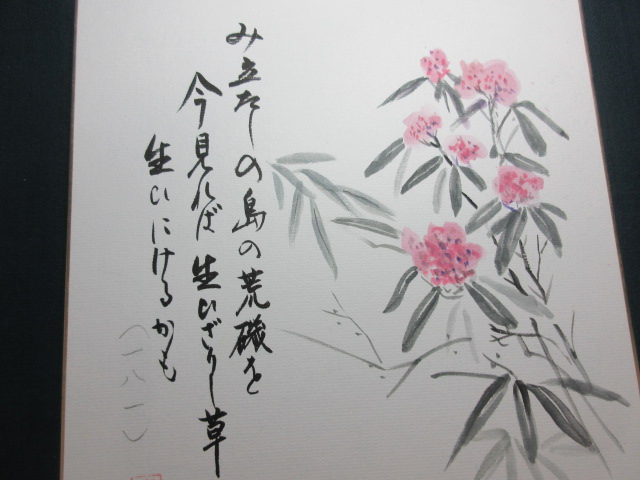 み立たしの島の荒磯を
今見れば生ひざりし草
生ひにけるかも
（一八一）